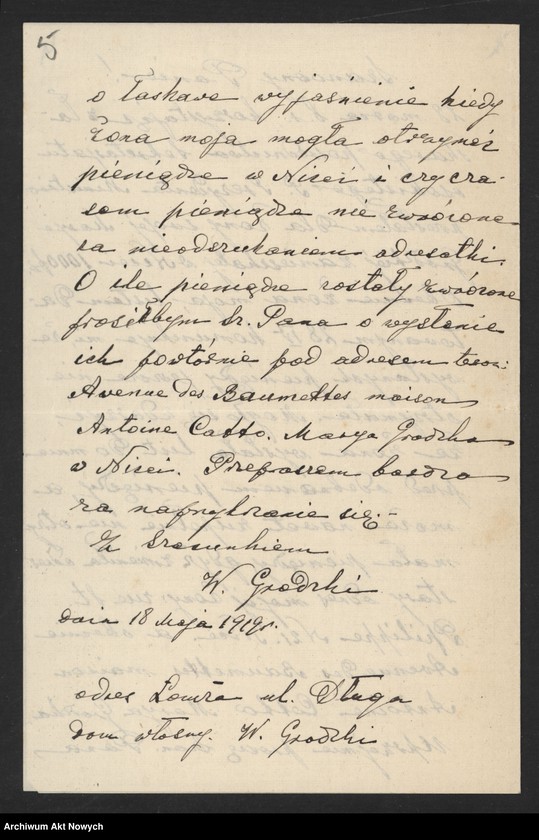 5
o łaskawe wyjaśnienie kiedy
żona moja mogła otrzymać
pieniądze w Nisei i czy cza-
sem pieniądze nie zwrócone
za nieodszukaniem adresatki.
O ile pieniądze zostały zwrócone
prosiłbym Sz. Pana o wysłanie
ich powtórnie pod adresem
Avenue des Baumettes maison
Antoine Catto. Marya Grodzka
w Nisei. Przepraszam bardzo
za naprzykrzanie się.-
Z szacunkiem
W. Grodzki
dnia 18 Maja 1919 r.
adres Łomża ul. Długa
dom własny. W. Grodzki
Archiwum Akt Nowych